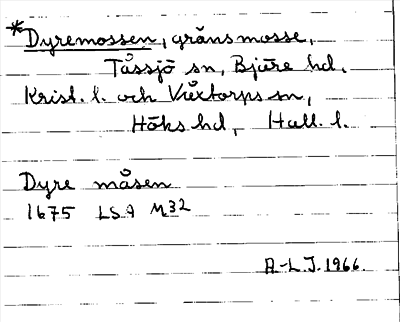 *Dyremossen, gränsmosse,
Tåssjö sn, Bjäre hd,
Krist. l. och Våxtorps sn,
Höks hd, Hall. l.
Dyre måsen
1675 LSA M32
A.-L.J. 1966.